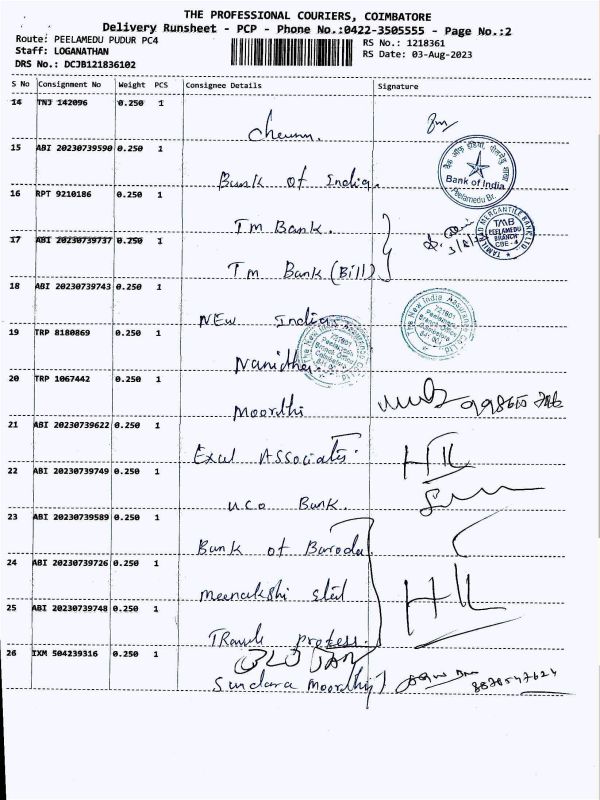 THE PROFESSIONAL COURIERS, COIMBATORE
Delivery Runsheet - PCP - Phone No.:0422-3505555 - Page No.:2
Route: PEELAMEDU PUDUR PC4
RS No.: 1218361
Staff: LOGANATHAN
RS Date: 03-Aug-2023
DRS No.: DCJB121836102
S No Consignment No Weight PCS Consignee Details Signature
14 TNJ 142096 0.250 1
15 ABI 20230739590 0.250 1
Bank of India
Bank of India
Peelamedu Br.
16 RPT 9210186 0.250 1
Tm Bank.
TAMILNAD MERCANTILE BANK LTD
TMB
PEELAMEDU
BRANCH
CBE - 4
17 ABI 20230739737 0.250 1
Tm Bank (Bill)
18 ABI 20230739743 0.250 1
NEw India
The New India Assurance Co. Ltd
721801
Peelamedu
Branch Office
Coimbatore
19 TRP 8180869 0.250 1
20 TRP 1067442 0.250 1
Moorthi
21 ABI 20230739622 0.250 1
Excel Associates.
HIL
22 ABI 20230739749 0.250 1
uco Bank.
23 ABI 20230739589 0.250 1
Bank of Baroda
24 ABI 20230739726 0.250 1
meenakshi steel
HIL
25 ABI 20230739748 0.250 1
26 IXM 504239316 0.250 1
Sundara Moorthy